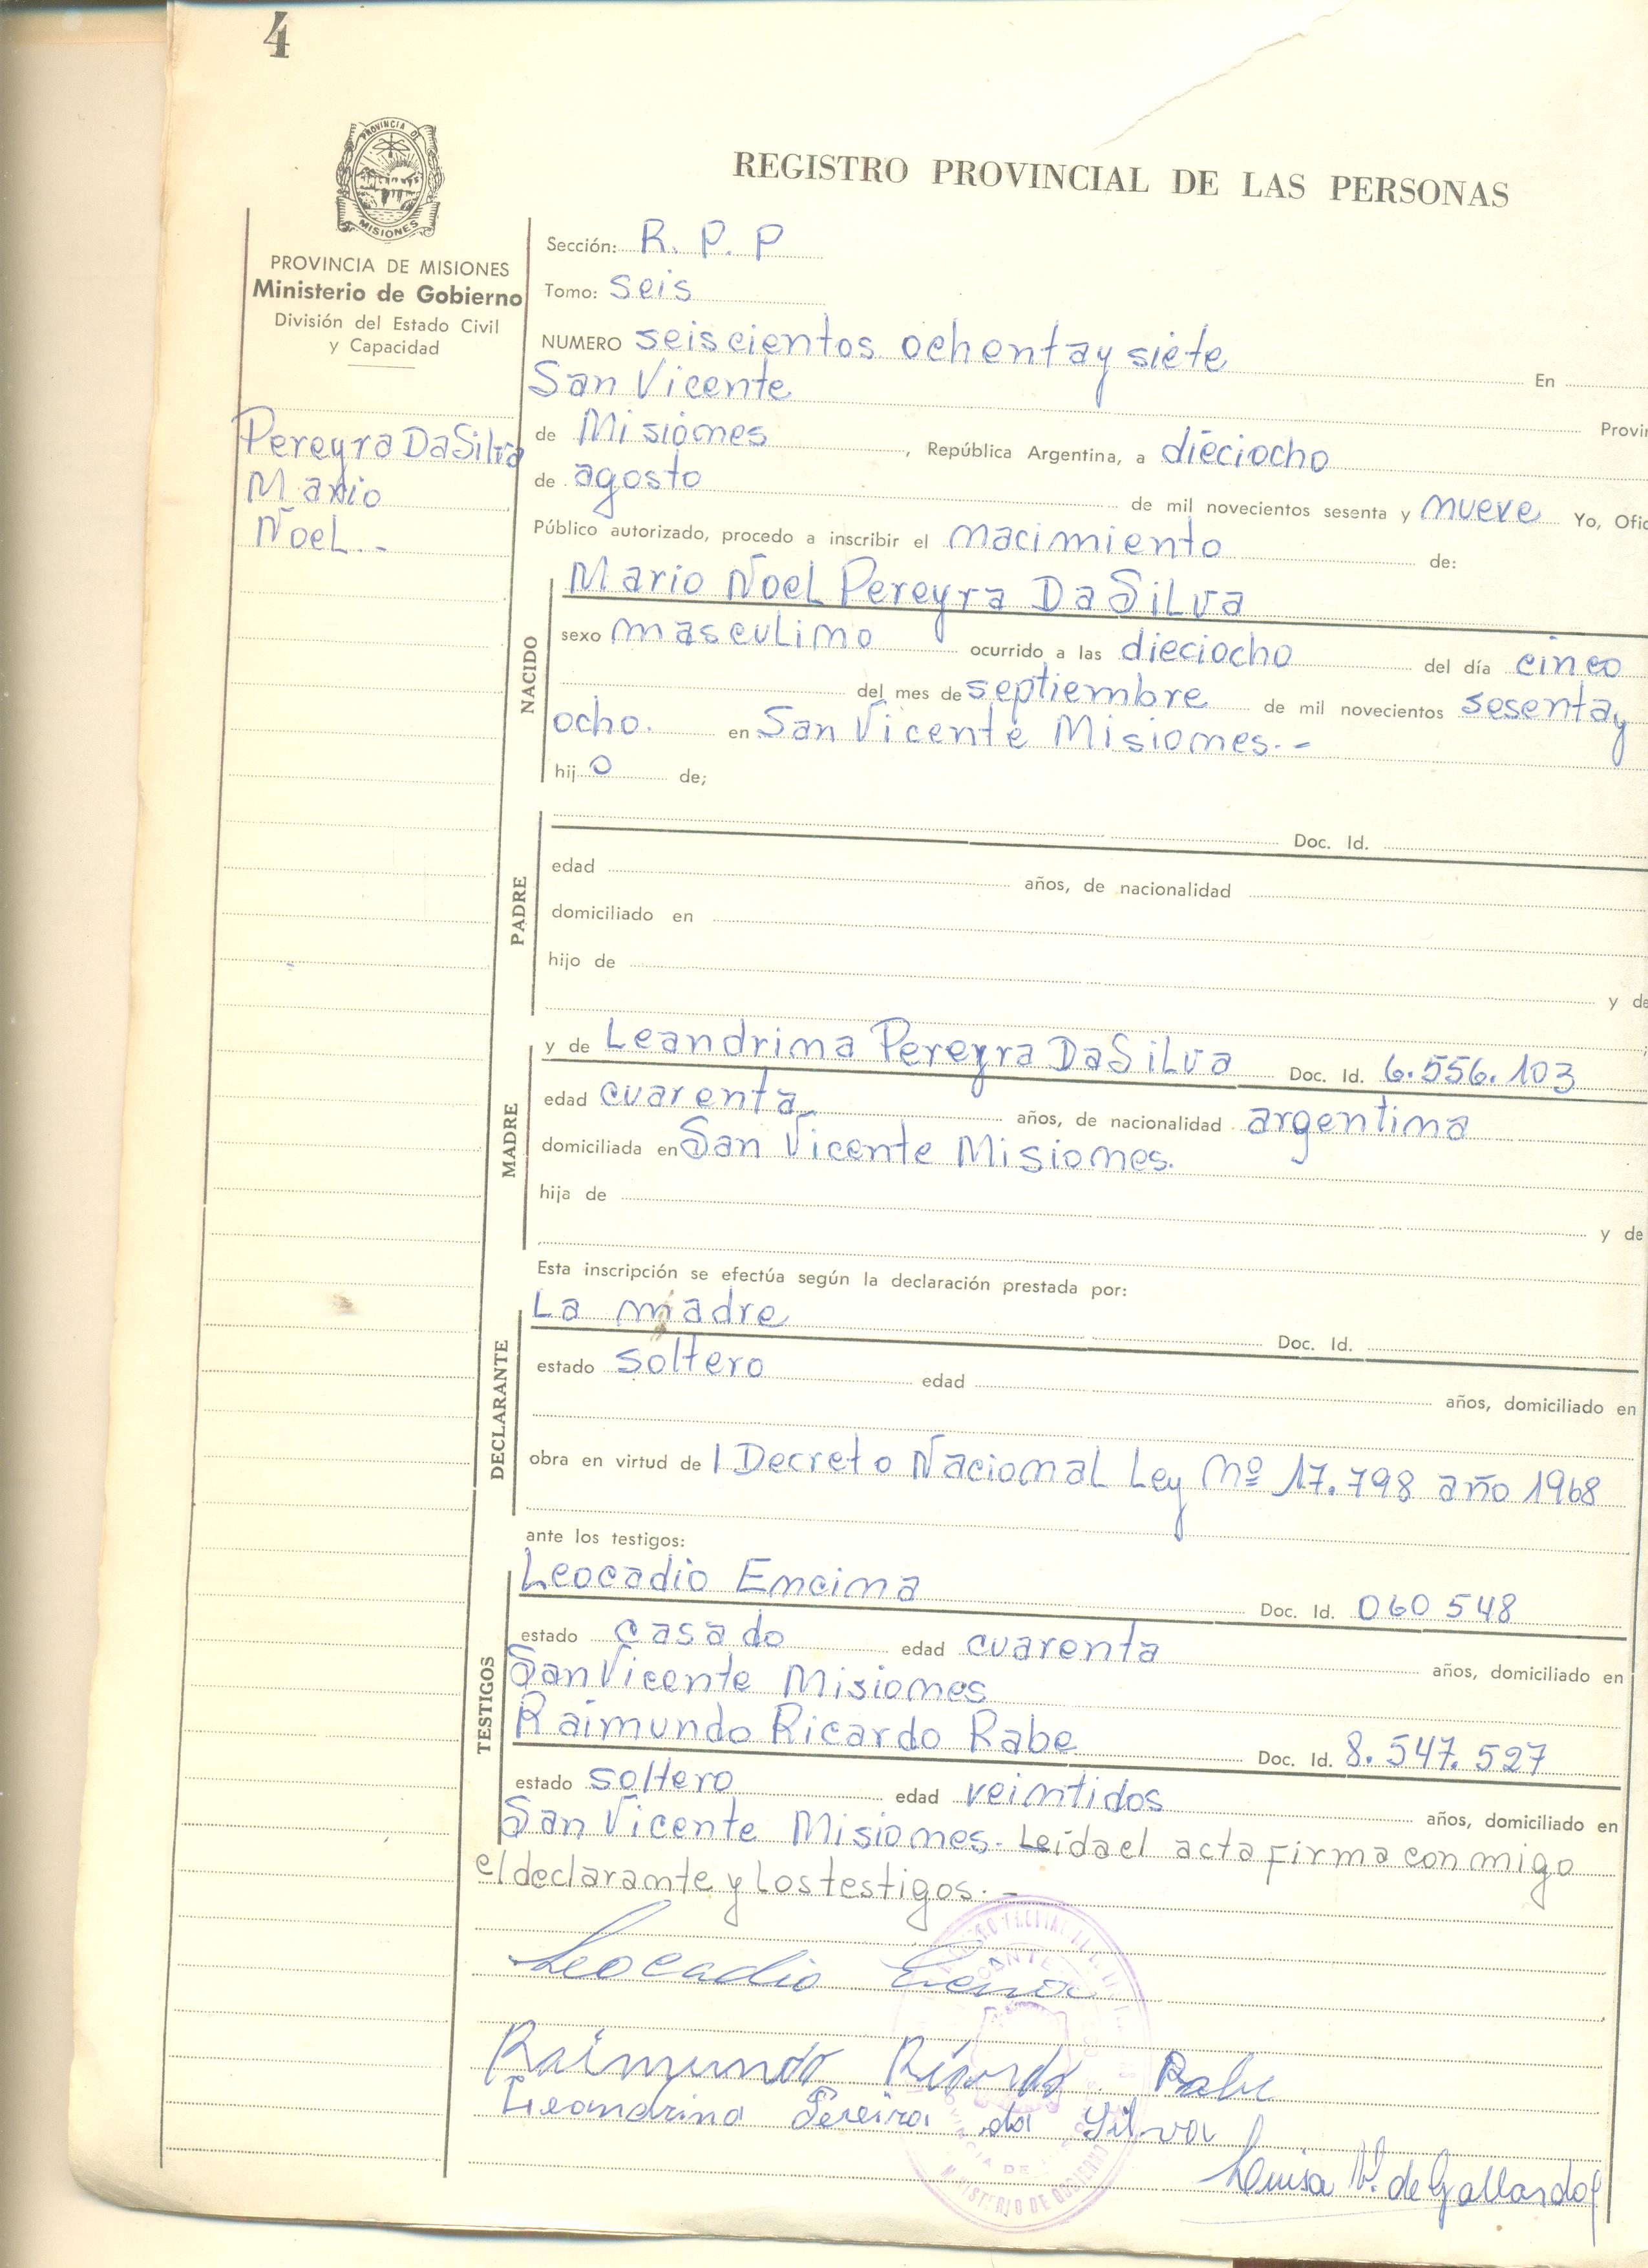 4
PROVINCIA DE
MISIONES
REGISTRO PROVINCIAL DE LAS PERSONAS
PROVINCIA DE MISIONES
Ministerio de Gobierno
División del Estado Civil
y Capacidad
Pereyra DaSilva
Mario
Ñoel.-
Sección: R. P. P
Tomo: seis
NUMERO seiscientos ochenta y siete En
San Vicente Provin
de Misiones, República Argentina, a dieciocho
de agosto de mil novecientos sesenta y nueve Yo, Ofic
Público autorizado, procedo a inscribir el nacimiento de:
NACIDO
Mario Ñoel Pereyra DaSilva
sexo masculino ocurrido a las dieciocho del día cinco
del mes de septiembre de mil novecientos sesenta y
ocho. en San Vicente Misiones.-
hijo de;
PADRE
Doc. Id.
edad años, de nacionalidad
domiciliado en
hijo de
y de
MADRE
y de Leandrina Pereyra DaSilva Doc. Id. 6.556.103
edad cuarenta años, de nacionalidad argentina
domiciliada en San Vicente Misiones.
hija de
y de
Esta inscripción se efectúa según la declaración prestada por:
DECLARANTE
La madre Doc. Id.
estado soltero edad años, domiciliado en
obra en virtud del Decreto Nacional Ley Nº 17.798 año 1968
ante los testigos:
TESTIGOS
Leocadio Encina Doc. Id. 060 548
estado casado edad cuarenta años, domiciliado en
San Vicente Misiones
Raimundo Ricardo Rabe Doc. Id. 8.547.527
estado soltero edad veintidos años, domiciliado en
San Vicente Misiones. Leída el acta firma conmigo
el declarante y los testigos.-
Leocadio
Raimundo Ricardo Rabe
Leandrina Pereira da Silva
Luisa V. de Gallardo
MINISTERIO DE GOBIERNO